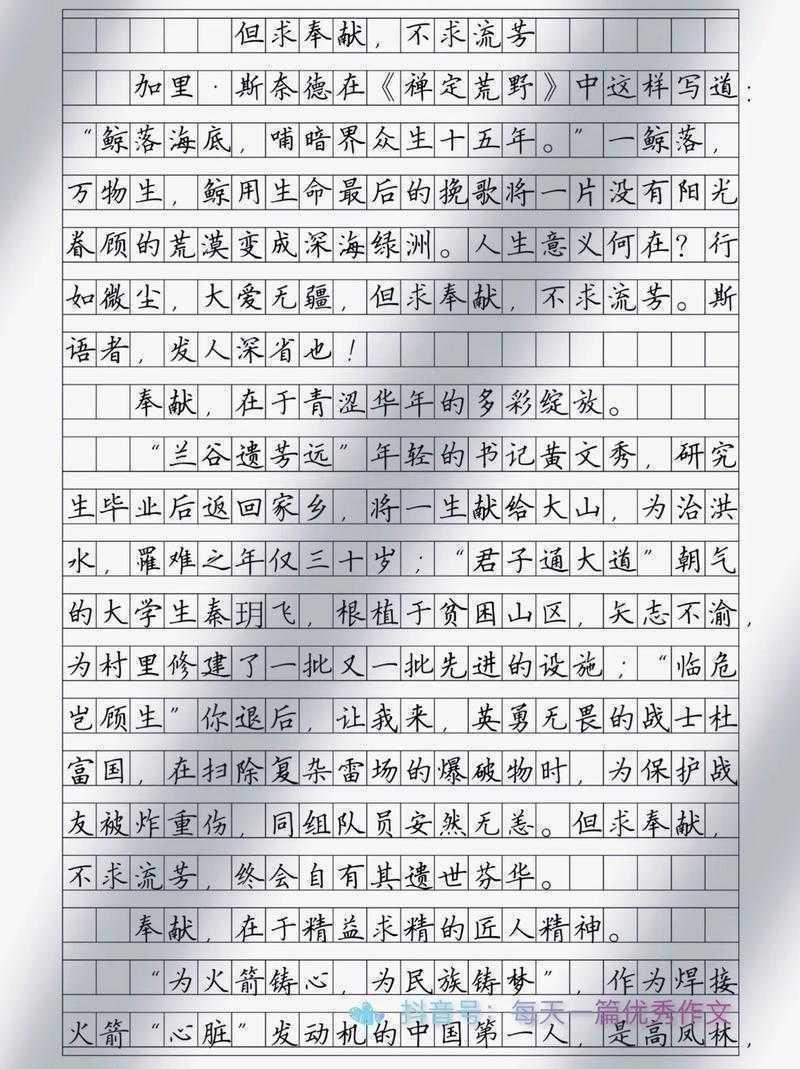 但求奉献，不求流芳
加里·斯奈德在《禅定荒野》中这样写道：
“鲸落海底，哺暗界众生十五年。”一鲸落，
万物生，鲸用生命最后的挽歌将一片没有阳光
眷顾的荒漠变成深海绿洲。人生意义何在？行
如微尘，大爱无疆，但求奉献，不求流芳。斯
语者，发人深省也！
奉献，在于青涩华年的多彩绽放。
“兰谷遗芳远”年轻的书记黄文秀，研究
生毕业后返回家乡，将一生献给大山，为治洪
水，罹难之年仅三十岁；“君子通大道”朝气
的大学生秦玥飞，根植于贫困山区，矢志不渝，
为村里修建了一批又一批先进的设施；“临危
岂顾生”你退后，让我来，英勇无畏的战士杜
富国，在扫除复杂雷场的爆破物时，为保护战
友被炸重伤，同组队员安然无恙。但求奉献，
不求流芳，终会自有其遗世芬华。
奉献，在于精益求精的匠人精神。
“为火箭铸心，为民族铸梦”，作为焊接
火箭“心脏”发动机的中国第一人，是高凤林，
抖音号：每天一篇优秀作文